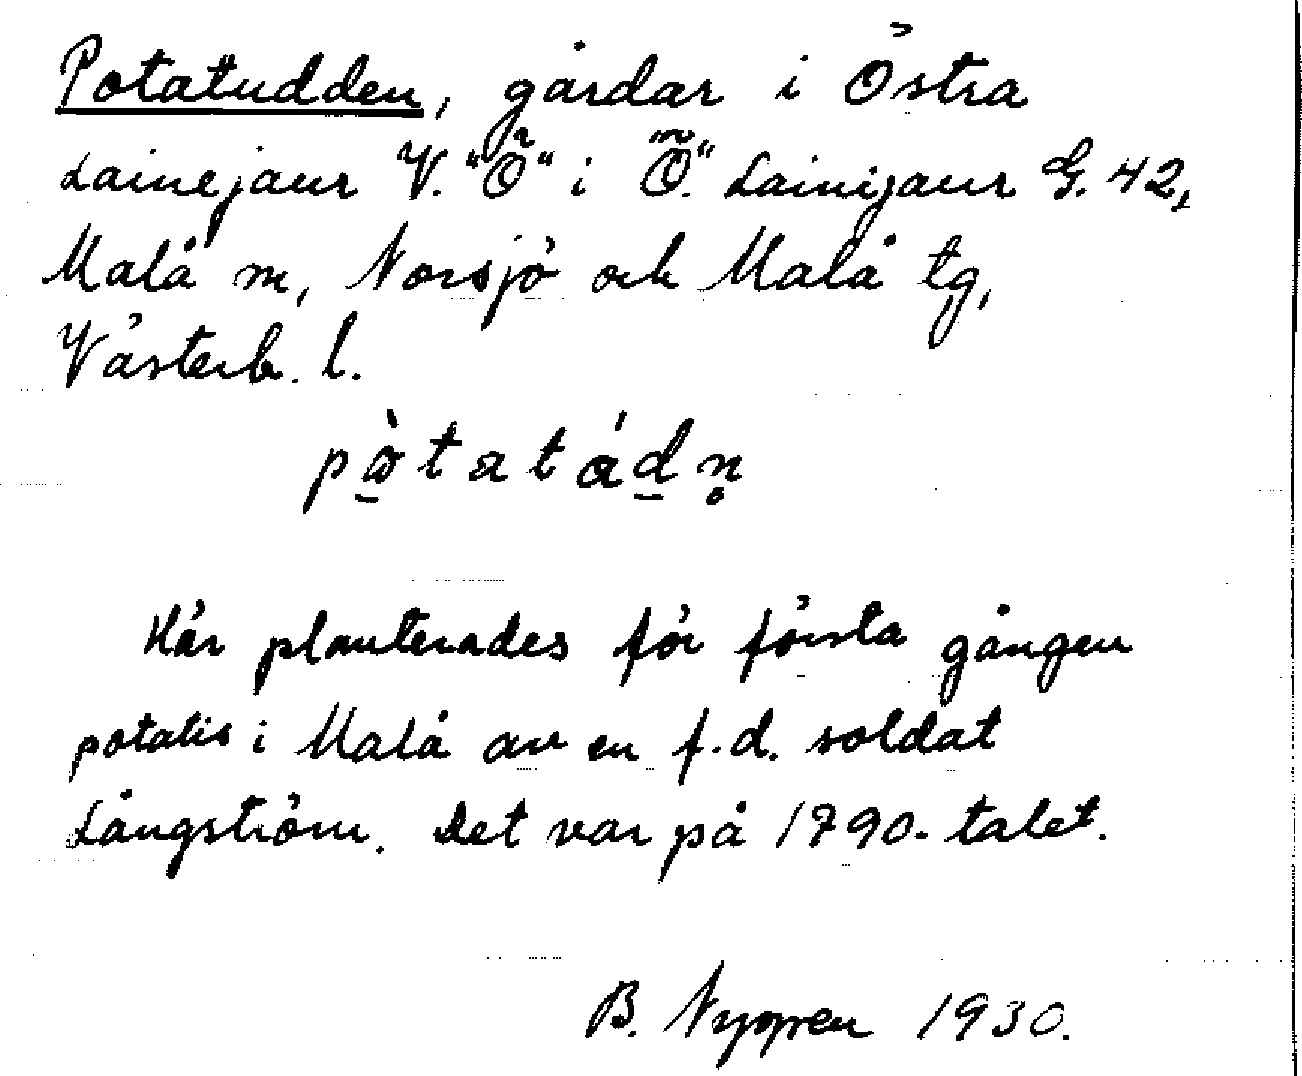 Potatudden, gårdar i Östra
Lainejaur V. "Ö" i "Ö." Lainijaur G. 42,
Malå sn, Norsjö och Malå tg,
Västerb. l.
pòtatádn̥
Här planterades för första gången
potatis i Malå av en f.d. soldat
Långström. Det var på 1790-talet.
B. Nygren 1930.